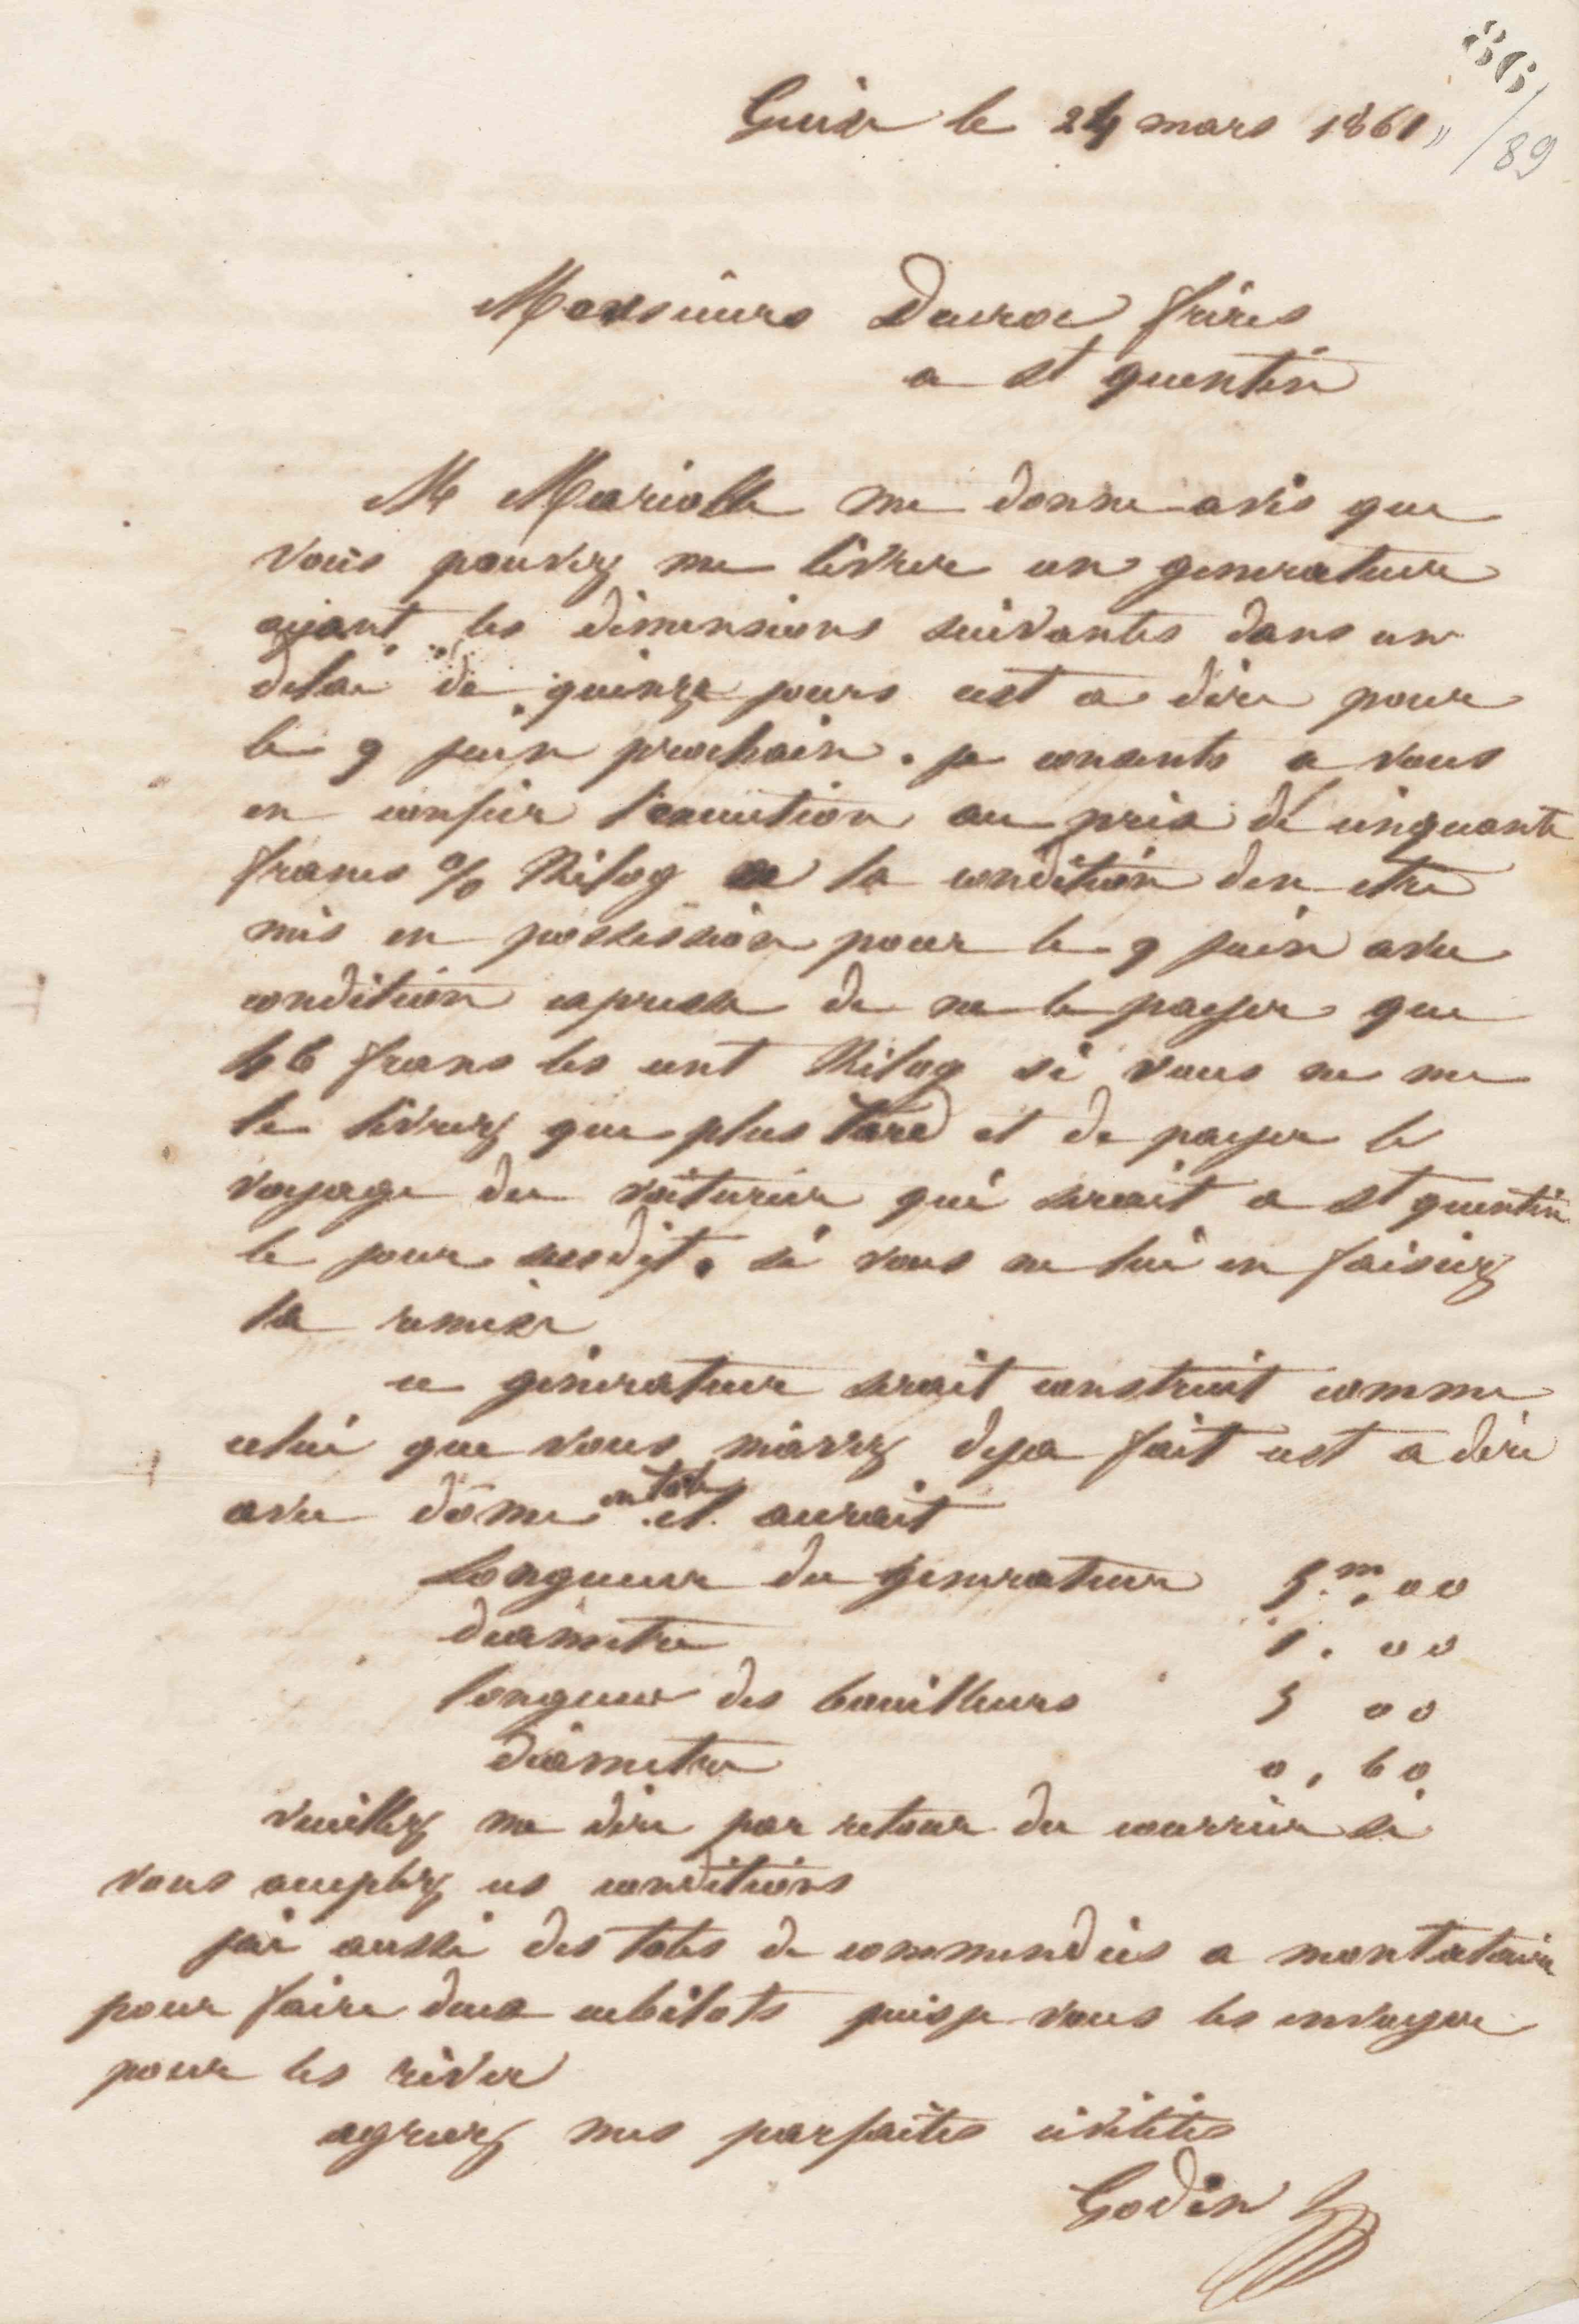 86
/ 89
Guise le 24 mars 1861
Messieurs Ducroc frères
a st quentin
Mr Mariolle me donne avis que
vous pouvez me livrer un generateur
ayant les dimensions suivantes dans un
delai de quinze jours cest a dire pour
le 9 juin prochain. je consents a vous
en confier lexecution au prix de cinquante
francs % Kilog a la condition den etre
mis en possession pour le 9 juin avec
condition expresse de ne le payer que
46 frans les cent Kilog si vous ne me
le livrez que plus tard et de payer le
voyage du voiturier qui serait a st quentin
le jour susdit. si vous ne lui en faisiez
la remise
ce génerateur serait construit comme
celui que vous mavez deja fait cest a dire
avec dôme en tole et aurait
Longueur du generateur 5.m,00
diametre 1.00
longueur des bouilleurs 5 00
diametre 0,60
veuillez me dire par retour du courrier si
vous acceptez ces conditions
jai aussi des toles de commendées a montataire
pour faire deux cubilots puis je vous les envoyer
pour les river
agreez mes parfaites civilités
Godin